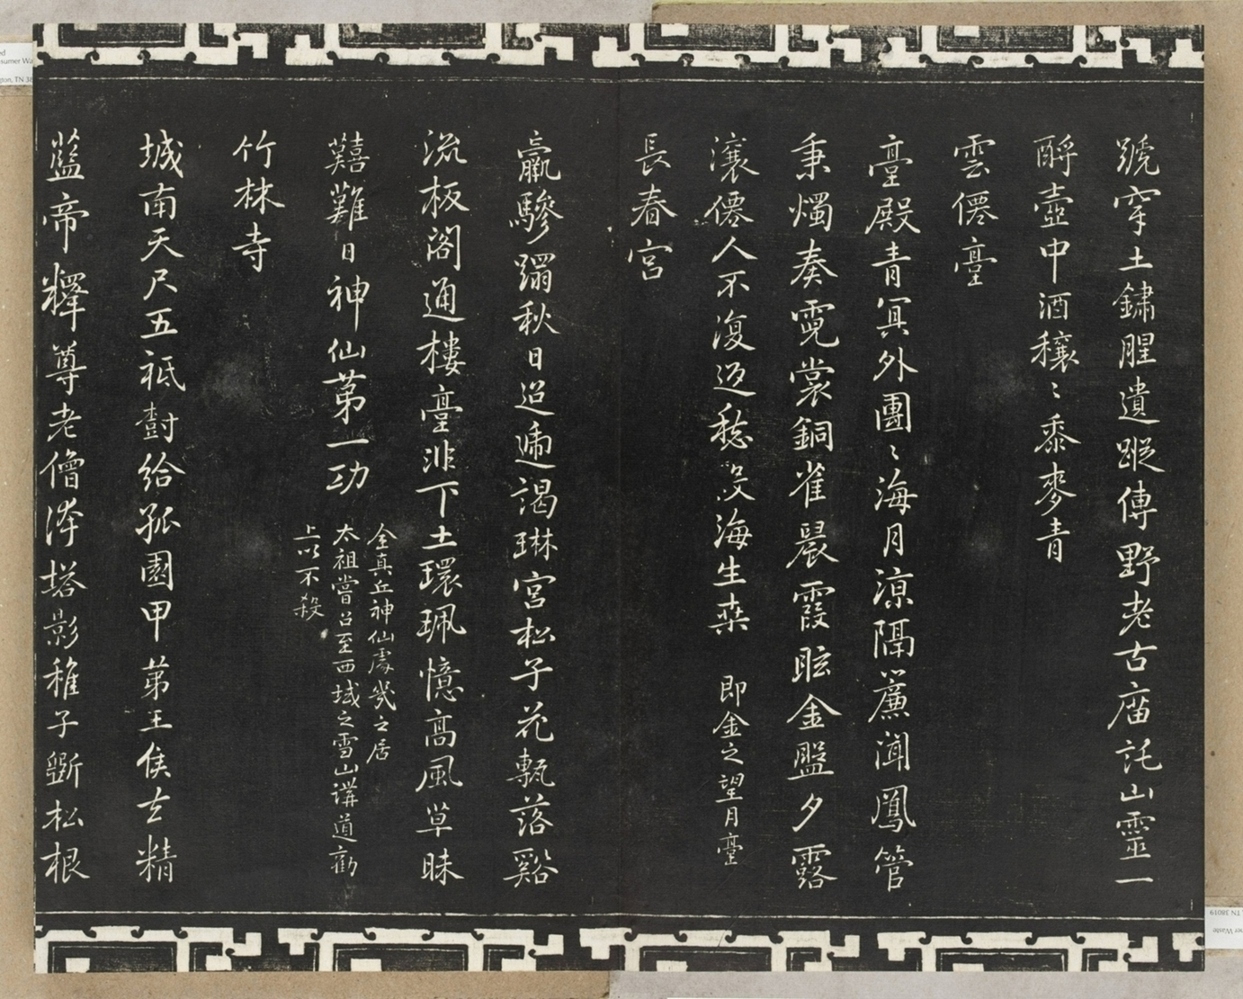 號穿土鏽腥遺蹤傳野老古廟託山靈一
酹壺中酒穰〻黍麥青
雲僊臺
臺殿青冥外團〻海月涼隔簾聞鳳管
秉燭奏霓裳銅雀晨霞眩金盤夕露
瀼僊人不復返愁沒海生桒 即金之望月臺
長春宮
羸驂躡秋日迢遞謁琳宮松子花甎落谿
流板閣通樓臺非下土環珮憶高風草昧
囏難日神仙第一功
全真丘神仙處幾之居
太祖嘗召至西域之雪山講道勸
上以不殺
竹林寺
城南天尺五祗對給孤園甲第王侯去精
藍帝釋尊老僧湥塔影稚子斲松根